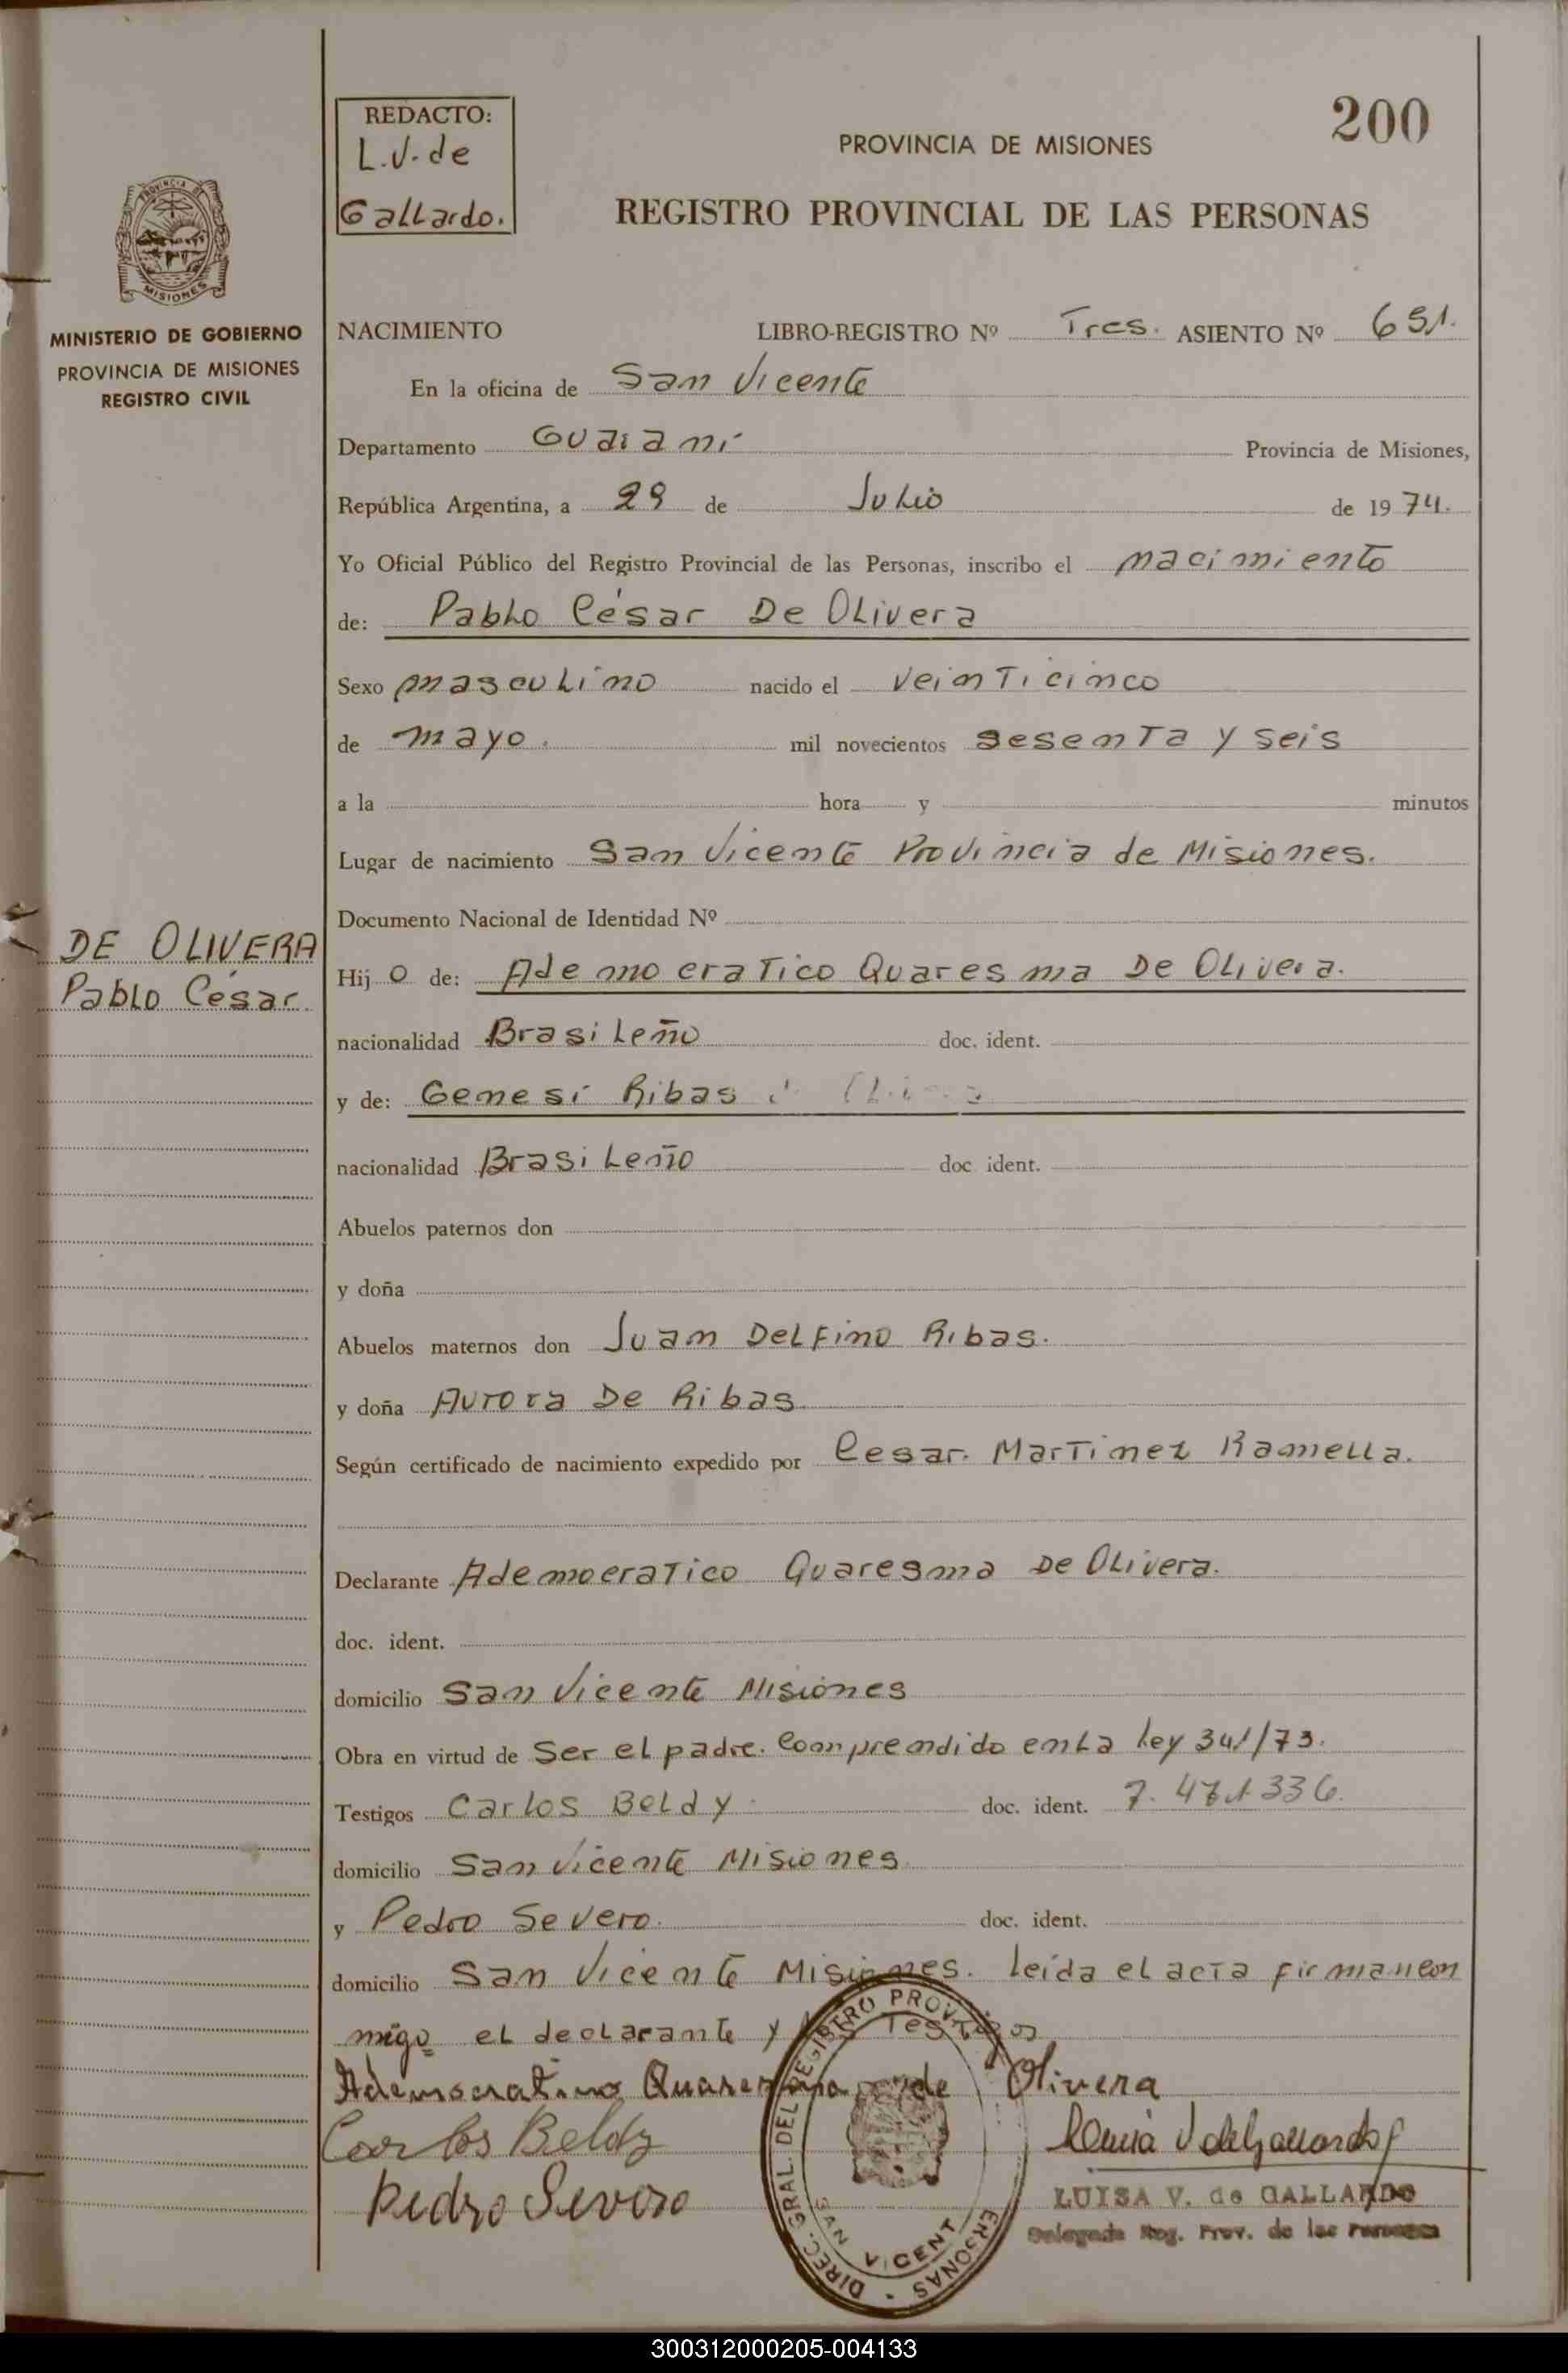 200
REDACTO:
L.V. de
Gallardo.
PROVINCIA DE MISIONES
REGISTRO PROVINCIAL DE LAS PERSONAS
PROVINCIA DE
MISIONES
MINISTERIO DE GOBIERNO
PROVINCIA DE MISIONES
REGISTRO CIVIL
NACIMIENTO LIBRO-REGISTRO Nº Tres. ASIENTO Nº 651.
En la oficina de San Vicente
Departamento Guaraní Provincia de Misiones,
República Argentina, a 29 de Julio de 1974.
Yo Oficial Público del Registro Provincial de las Personas, inscribo el nacimiento
de: Pablo César De Olivera
Sexo masculino nacido el veinticinco
de mayo. mil novecientos sesenta y seis
a la hora y minutos
Lugar de nacimiento San Vicente Provincia de Misiones.
Documento Nacional de Identidad Nº
DE OLIVERA
Pablo César.
Hij o de: Ademocratico Quaresma De Olivera.
nacionalidad Brasileño doc. ident.
y de: Genesi Ribas
nacionalidad Brasileño doc ident.
Abuelos paternos don
y doña
Abuelos maternos don Juan Delfino Ribas.
y doña Aurora De Ribas
Según certificado de nacimiento expedido por Cesar. Martinez Ramella.
Declarante Ademocratico Quaresma De Olivera.
doc. ident.
domicilio San Vicente Misiones
Obra en virtud de Ser el padre. Comprendido en La Ley 341/73.
Testigos Carlos Beldy. doc. ident. 7.471336.
domicilio San Vicente Misiones.
y Pedro Severo. doc. ident.
domicilio San Vicente Misiones. leída el acta firman con
migo el declarante y los Testigos
Ademocratino Quaresma de Olivera
Carlos Beldy
Pedro Severo
Luisa V de Gallardo
LUISA V. de GALLARDO
Delegada Reg. Prov. de las Personas
DIREC. GRAL. DEL REGISTRO PROV. PERSONAS
SAN VICENTE
300312000205-004133